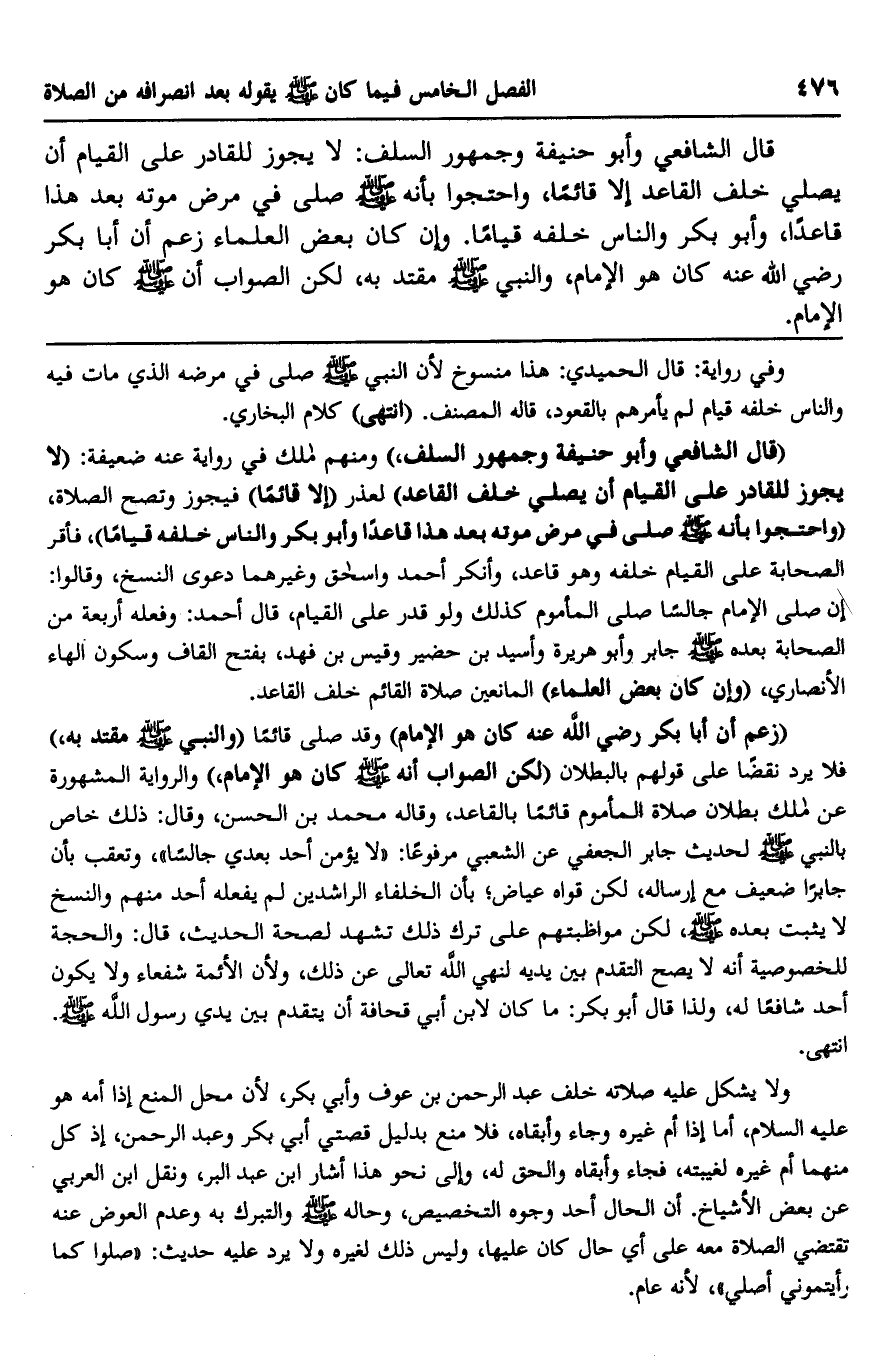 ٤٧٦ الفصل الخامس فيما كان ﷺ يقوله بعد انصرافه من الصلاة
قال الشافعي وأبو حنيفة وجمهور السلف: لا يجوز للقادر على القيام أن
يصلي خلف القاعد إلا قائمًا، واحتجوا بأنه ﷺ صلى في مرض موته بعد هذا
قاعدًا، وأبو بكر والناس خلفه قيامًا. وإن كان بعض العلماء زعم أن أبا بكر
رضي الله عنه كان هو الإمام، والنبي ﷺ مقتد به، لكن الصواب أن ﷺ كان هو
الإمام.
وفي رواية: قال الحميدي: هذا منسوخ لأن النبي ﷺ صلى في مرضه الذي مات فيه
والناس خلفه قيام لم يأمرهم بالقعود، قاله المصنف. (انتهى) كلام البخاري.
(قال الشافعي وأبو حنيفة وجمهور السلف،) ومنهم لملك في رواية عنه ضعيفة: (لا
يجوز للقادر على القيام أن يصلي خلف القاعد) لعذر (إلا قائمًا) فيجوز وتصح الصلاة،
(واحتجوا بأنه ﷺ صلى في مرض موته بعد هذا قاعدًا وأبو بكر والناس خلفه قيامًا)، فأقر
الصحابة على القيام خلفه وهو قاعد، وأنكر أحمد واسحٰق وغيرهما دعوى النسخ، وقالوا:
إن صلى الإمام جالسًا صلى المأموم كذلك ولو قدر على القيام، قال أحمد: وفعله أربعة من
الصحابة بعده ﷺ جابر وأبو هريرة وأسيد بن حضير وقيس بن فهد، بفتح القاف وسكون الهاء
الأنصاري، (وإن كان بعض العلماء) المانعين صلاة القائم خلف القاعد.
(زعم أن أبا بكر رضي اللَّه عنه كان هو الإمام) وقد صلى قائمًا (والنبي ﷺ مقتد به،)
فلا يرد نقضًا على قولهم بالبطلان (لكن الصواب أنه ﷺ كان هو الإمام،) والرواية المشهورة
عن لملك بطلان صلاة المأموم قائمًا بالقاعد، وقاله محمد بن الحسن، وقال: ذلك خاص
بالنبي ﷺ لحديث جابر الجعفي عن الشعبي مرفوعًا: «لا يؤمن أحد بعدي جالسًا»، وتعقب بأن
جابرًا ضعيف مع إرساله، لكن قواه عياض؛ بأن الخلفاء الراشدين لم يفعله أحد منهم والنسخ
لا يثبت بعده ﷺ، لكن مواظبتهم على ترك ذلك تشهد لصحة الحديث، قال: والحجة
للخصوصية أنه لا يصح التقدم بين يديه لنهي اللَّه تعالى عن ذلك، ولأن الأئمة شفعاء ولا يكون
أحد شافعًا له، ولذا قال أبو بكر: ما كان لابن أبي قحافة أن يتقدم بين يدي رسول اللَّه ﷺ.
انتهى.
ولا يشكل عليه صلاته خلف عبد الرحمن بن عوف وأبي بكر، لأن محل المنع إذا أمه هو
عليه السلام، أما إذا أم غيره وجاء وأبقاه، فلا منع بدليل قصتي أبي بكر وعبد الرحمن، إذ كل
منهما أم غيره لغيبته، فجاء وأبقاه والحق له، وإلى نحو هذا أشار ابن عبد البر، ونقل ابن العربي
عن بعض الأشياخ. أن الحال أحد وجوه التخصيص، وحاله ﷺ والتبرك به وعدم العوض عنه
تقتضي الصلاة معه على أي حال كان عليها، وليس ذلك لغيره ولا يرد عليه حديث: «صلوا كما
رأيتموني أصلي»، لأنه عام.